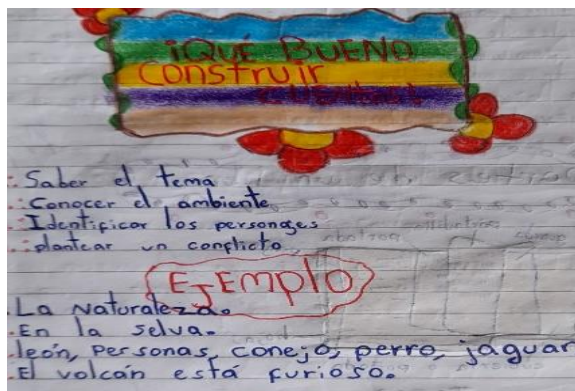 ¡QUÉ BUENO
construir
cuentos!
Saber el tema
Conocer el ambiente
Identificar los personajes
plantear un conflicto
EJEMPlO
La Naturaleza.
En la selva.
león, Personas, conejo, perro, jaguar
El volcán está furioso.